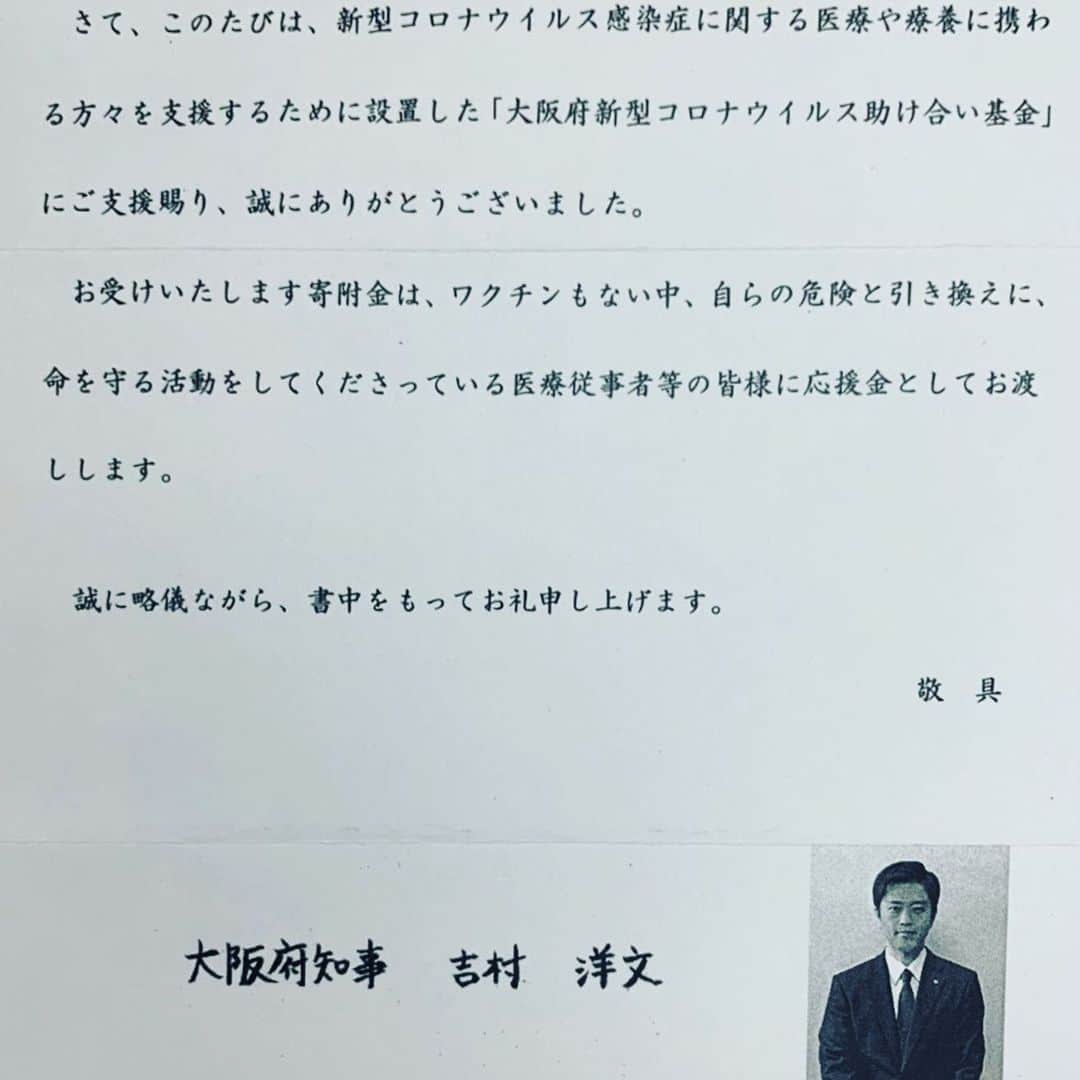 さて、このたびは、新型コロナウイルス感染症に関する医療や療養に携わ
る方々を支援するために設置した「大阪府新型コロナウイルス助け合い基金」
にご支援賜り、誠にありがとうございました。
お受けいたします寄附金は、ワクチンもない中、自らの危険と引き換えに、
命を守る活動をしてくださっている医療従事者等の皆様に応援金としてお渡
しします。
誠に略儀ながら、書中をもってお礼申し上げます。
敬　具
大阪府知事　吉村　洋文